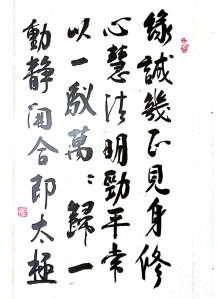 緣誠幾正見身修
心慧法明勁平常
以一馭萬〻歸一
動靜開合即太極